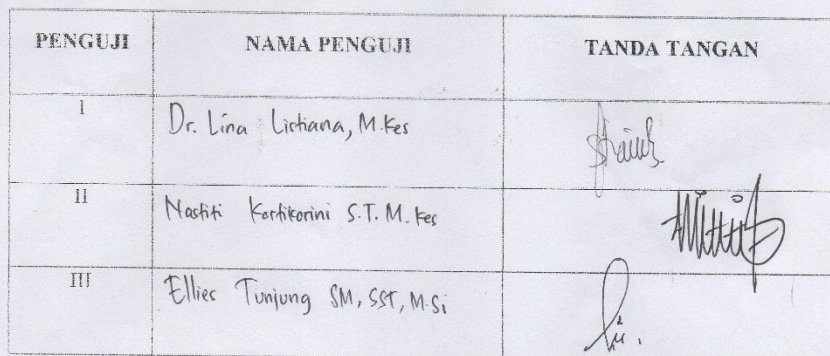 PENGUJI NAMA PENGUJI TANDA TANGAN
I Dr. Lina Listiana, M.Kes
II Nastiti Kartikorini S.T. M.Kes
III Ellies Tunjung SM, SST, M.Si